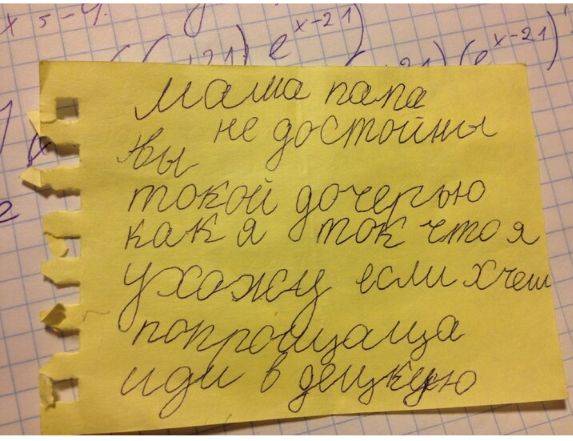 x 5-4.
e^(x-21)
+21) (e^(x-21))'
мама папа
вы не достойны
токой дочерью
как я ток что я
ухожу если хчеш
попрощаща
иди в децкую